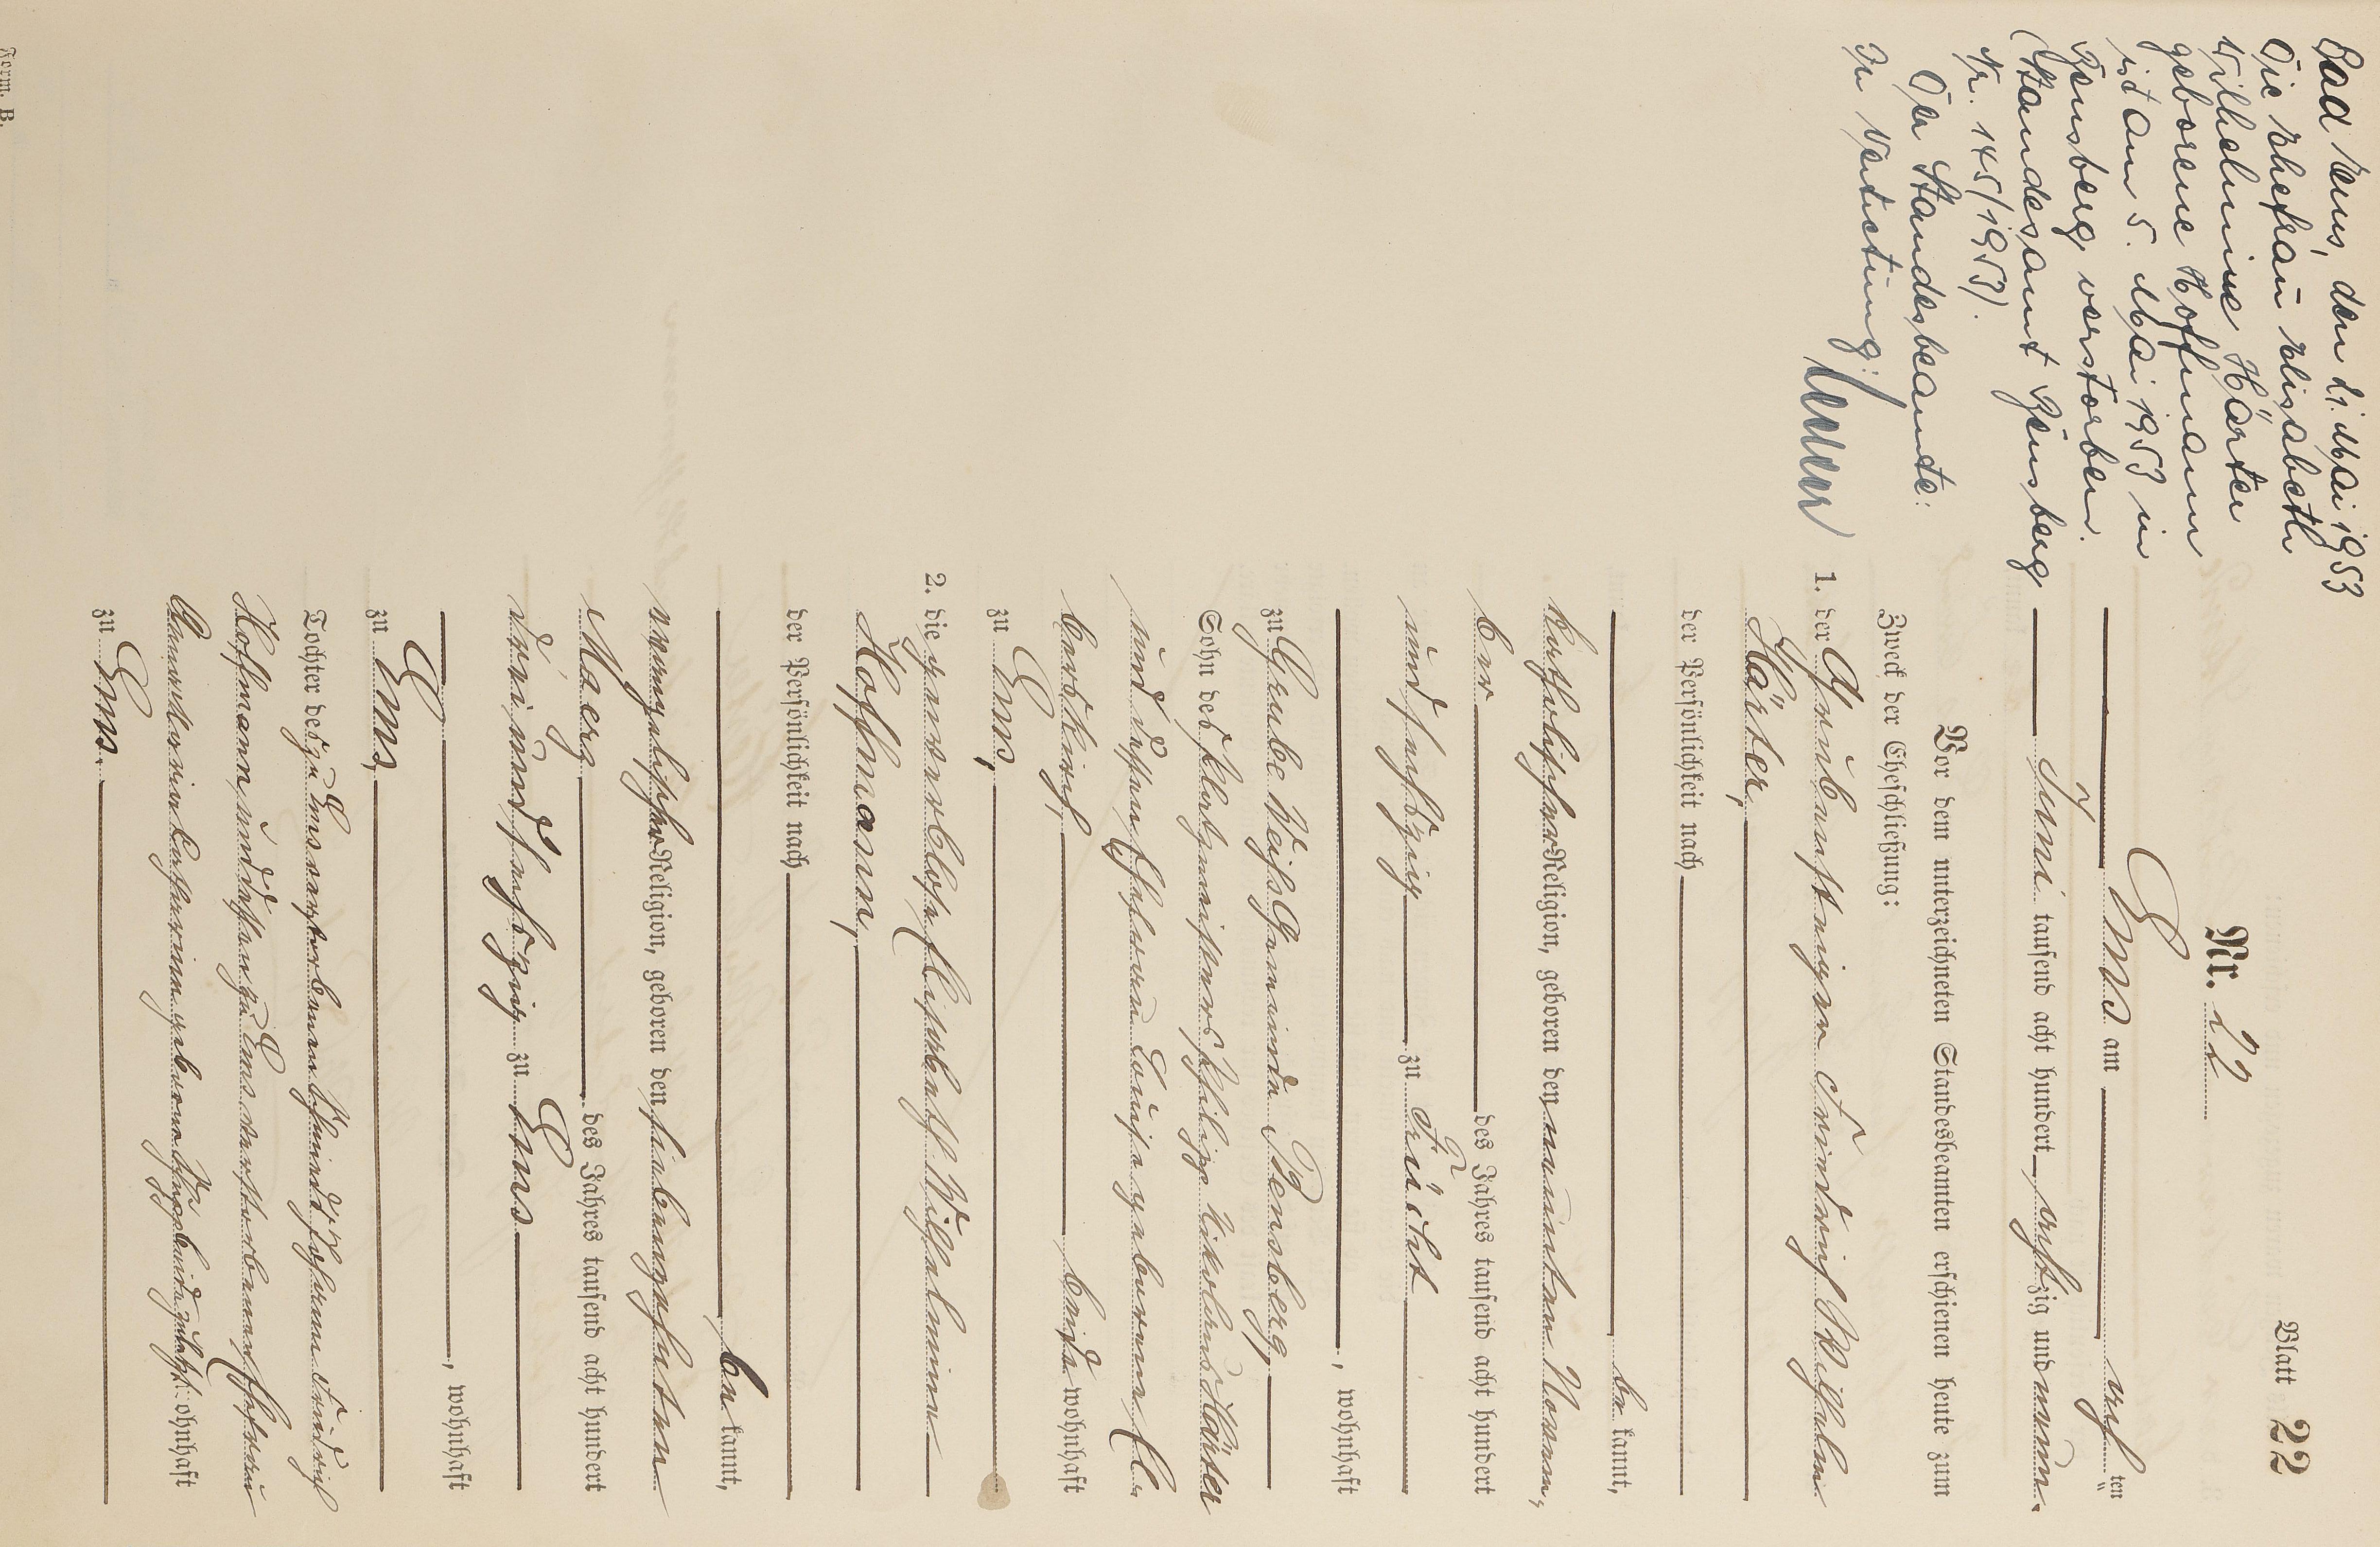 Blatt 22
Nr. 22
Ems am acht ten
Juni tausend acht hundert achtzig und neun.
Vor dem unterzeichneten Standesbeamten erschienen heute zum
Zweck der Eheschließung:
1. der Friedrich Wilhelm
Härter,
der Persönlichkeit nach
be kannt,
katholischer Religion, geboren den neunten Novem,
ber des Jahres tausend acht hundert
und sechszig zu Frücht
, wohnhaft
zu Grube Weiß Gemeinde Bensberg,
Sohn des Philipp Nikolaus Härter
und dessen Ehefrau Louise geborene
beide wohnhaft
zu Ems,
2. die gewerblose Elisabeth Wilhelmine
Hofmann,
der Persönlichkeit nach
be kannt,
evangelischer Religion, geboren den siebenzehnten
Maerz des Jahres tausend acht hundert
drei und sechszig zu Ems
, wohnhaft
zu Ems,
Tochter des zu Ems verstorbenen Friedrich
Hofmann und dessen zu Ems verstorbenen Ehefrau
geborene wohnhaft
zu Ems.
Bad Ems, den 21. Mai 1953
Die Ehefrau Elisabeth
Wilhelmine Härter
geborene Hofmann
ist am 5. Mai 1953 in
Bensberg verstorben.
(Standesamt Bensberg
Nr. 145/1953).
Der Standesbeamte:
In Vertretung:
Form. B.